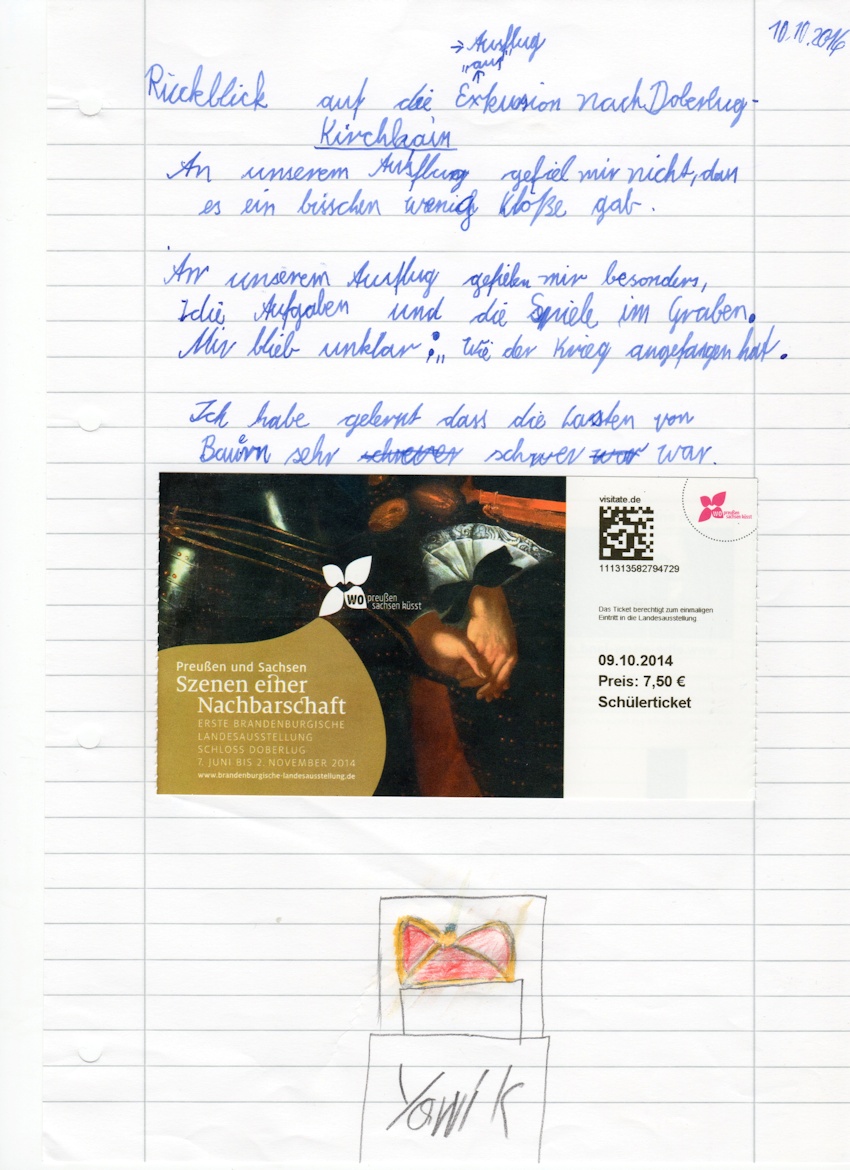 10.10.2014
→ Ausflug
"auf"
Rückblick auf die Exkusion nach Doberlug-
Kirchhain
An unserem Ausflung gefiel mir nicht, das
es ein bisschen wenich Klöße gab.
An unserem Ausflug gefielen mir besonders,
die Aufgaben und die Spiele im Graben.
Mir blieb unklar: „ Wie der Krieg angefangen hat.
Ich habe gelernt dass die Lasten von
Bauern sehr schwer war.
visitate.de
111313582794729
wo preußen
sachsen küsst
wo preußen
sachsen küsst
Das Ticket berechtigt zum einmaligen
Eintritt in die Landesausstellung
09.10.2014
Preis: 7,50 €
Schülerticket
Preußen und Sachsen
Szenen einer
Nachbarschaft
ERSTE BRANDENBURGISCHE
LANDESAUSSTELLUNG
SCHLOSS DOBERLUG
7. JUNI BIS 2. NOVEMBER 2014
www.brandenburgische-landesausstellung.de
Yawi K